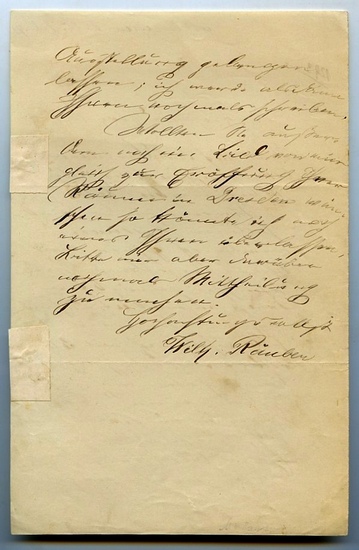 Ausstellung gelangen
lassen; ich werde alsdann
Ihnen nochmals schreiben.
Sollten Sie außer
dem noch ein Bild von mir
gleich zur Eröffnung Ihrer
Räume in Dresden wün
schen so könnte ich noch
eines Ihnen überlassen,
bitte mir aber darüber
nochmals Mittheilung
zu machen.
Hochachtungsvollst
Wilh. Räuber